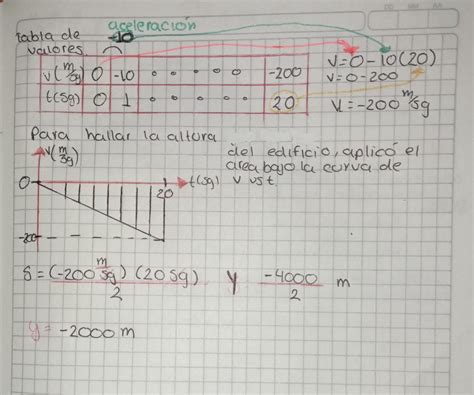 aceleración
Tabla de valores -10
v(m/sg) 0 -10 ° ° ° ° ° -200
t(sg) 0 1 ° ° ° ° ° 20
v=0-10(20)
v=0-200
v=-200 m/sg
Para hallar la altura del edificio, aplicó el
area bajo la curva de
v vs t
v(m/sg)
0 t(sg)
20
-200
s=(-200 m/sg)(20sg)/2 y -4000/2 m
y=-2000m